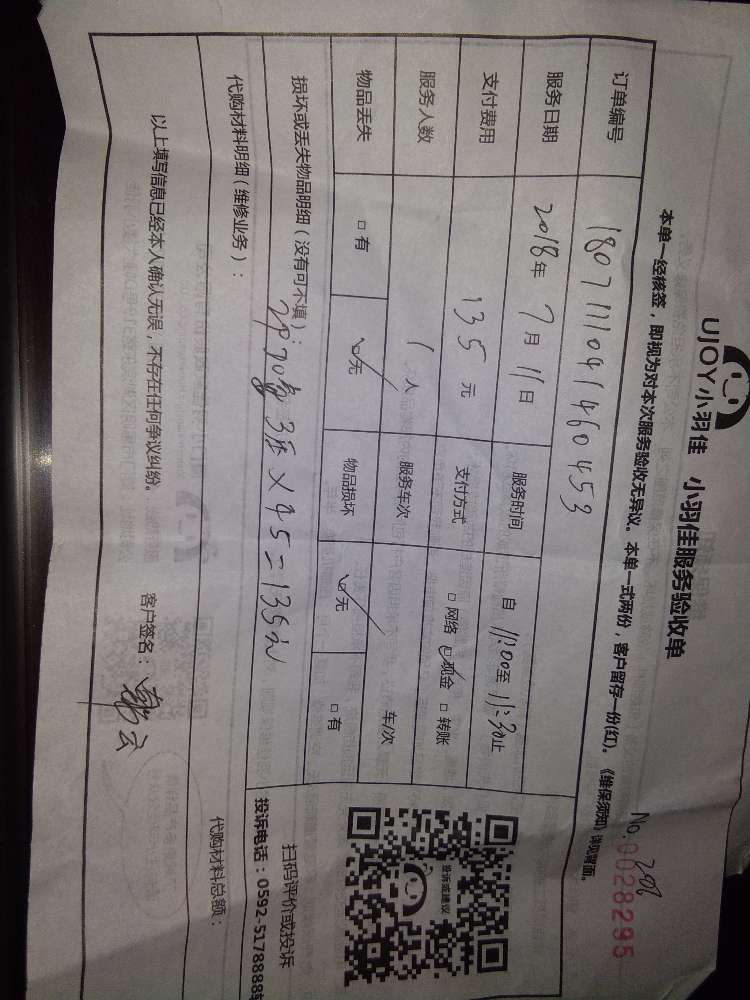 UJOY小羽佳 小羽佳服务验收单
No. 0028295
本单一经核签，即视为对本次服务验收无异议。本单一式两份，客户留存一份(红)。《维保须知》详见背面。
订单编号 1807111041460453
服务日期 2018年7月11日 服务时间 自 11:00至11:30止
支付费用 135元 支付方式 □网络 ☑现金 □转账
服务人数 1人 服务车次 车/次
物品丢失 □有 ☑无 物品损坏 ☑无 □有
投诉或建议
扫码评价或投诉
投诉电话：0592-5178888
损坏或丢失物品明细（没有可不填）：
3 × 45 = 135元
代购材料明细（维修业务）： 代购材料总额：
以上填写信息已经本人确认无误，不存在任何争议纠纷。 客户签名： 云